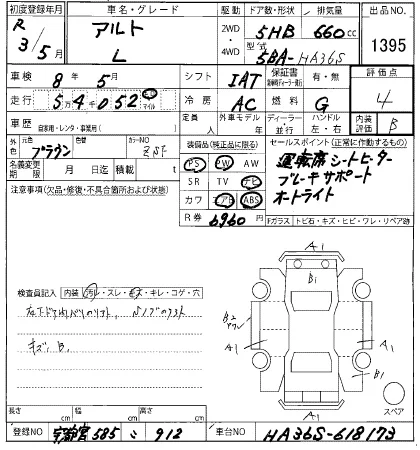 初度登録年月 車名・グレード 駆動 ドア数・形状 排気量 出品NO
R 3/5月 アルト L 2WD 4WD 5HB 660cc 1395
型式 5BA-HA36S
車検 8年 5月 シフト IAT 保証書 有・無 評価点 4
走行 5万4千052 キロ マイル 冷房 AC 燃料 G
車歴 自家用・レンタ・事業用( ) 定員 人 外車モデル 年 ディーラー・並行 ハンドル 左・右 内装評価 B
外色 元色 ブラウン 色替 カラーNO
名義変更期限 月 日迄 積載 t
注意事項(欠品・修復・不具合箇所および状態)
装備品(純正品に限る)
PS PW AW
SR TV ナビ
カワ エアB ABS
R券 6960円
セールスポイント(正常に作動するもの)
運転席シートヒーター
ブレーキサポート
オートライト
Fガラス トビ石・キズ・ヒビ・ワレ・リペア跡
検査員記入 内装 汚レ・スレ・キズ・キレ・コゲ・穴
キズ、B、
A1
B1
B2
A1
A1
B1
A1
スペア
長さ cm 幅 cm 高さ cm
登録NO 宇都宮 585 こ 912 車台NO HA36S-618173